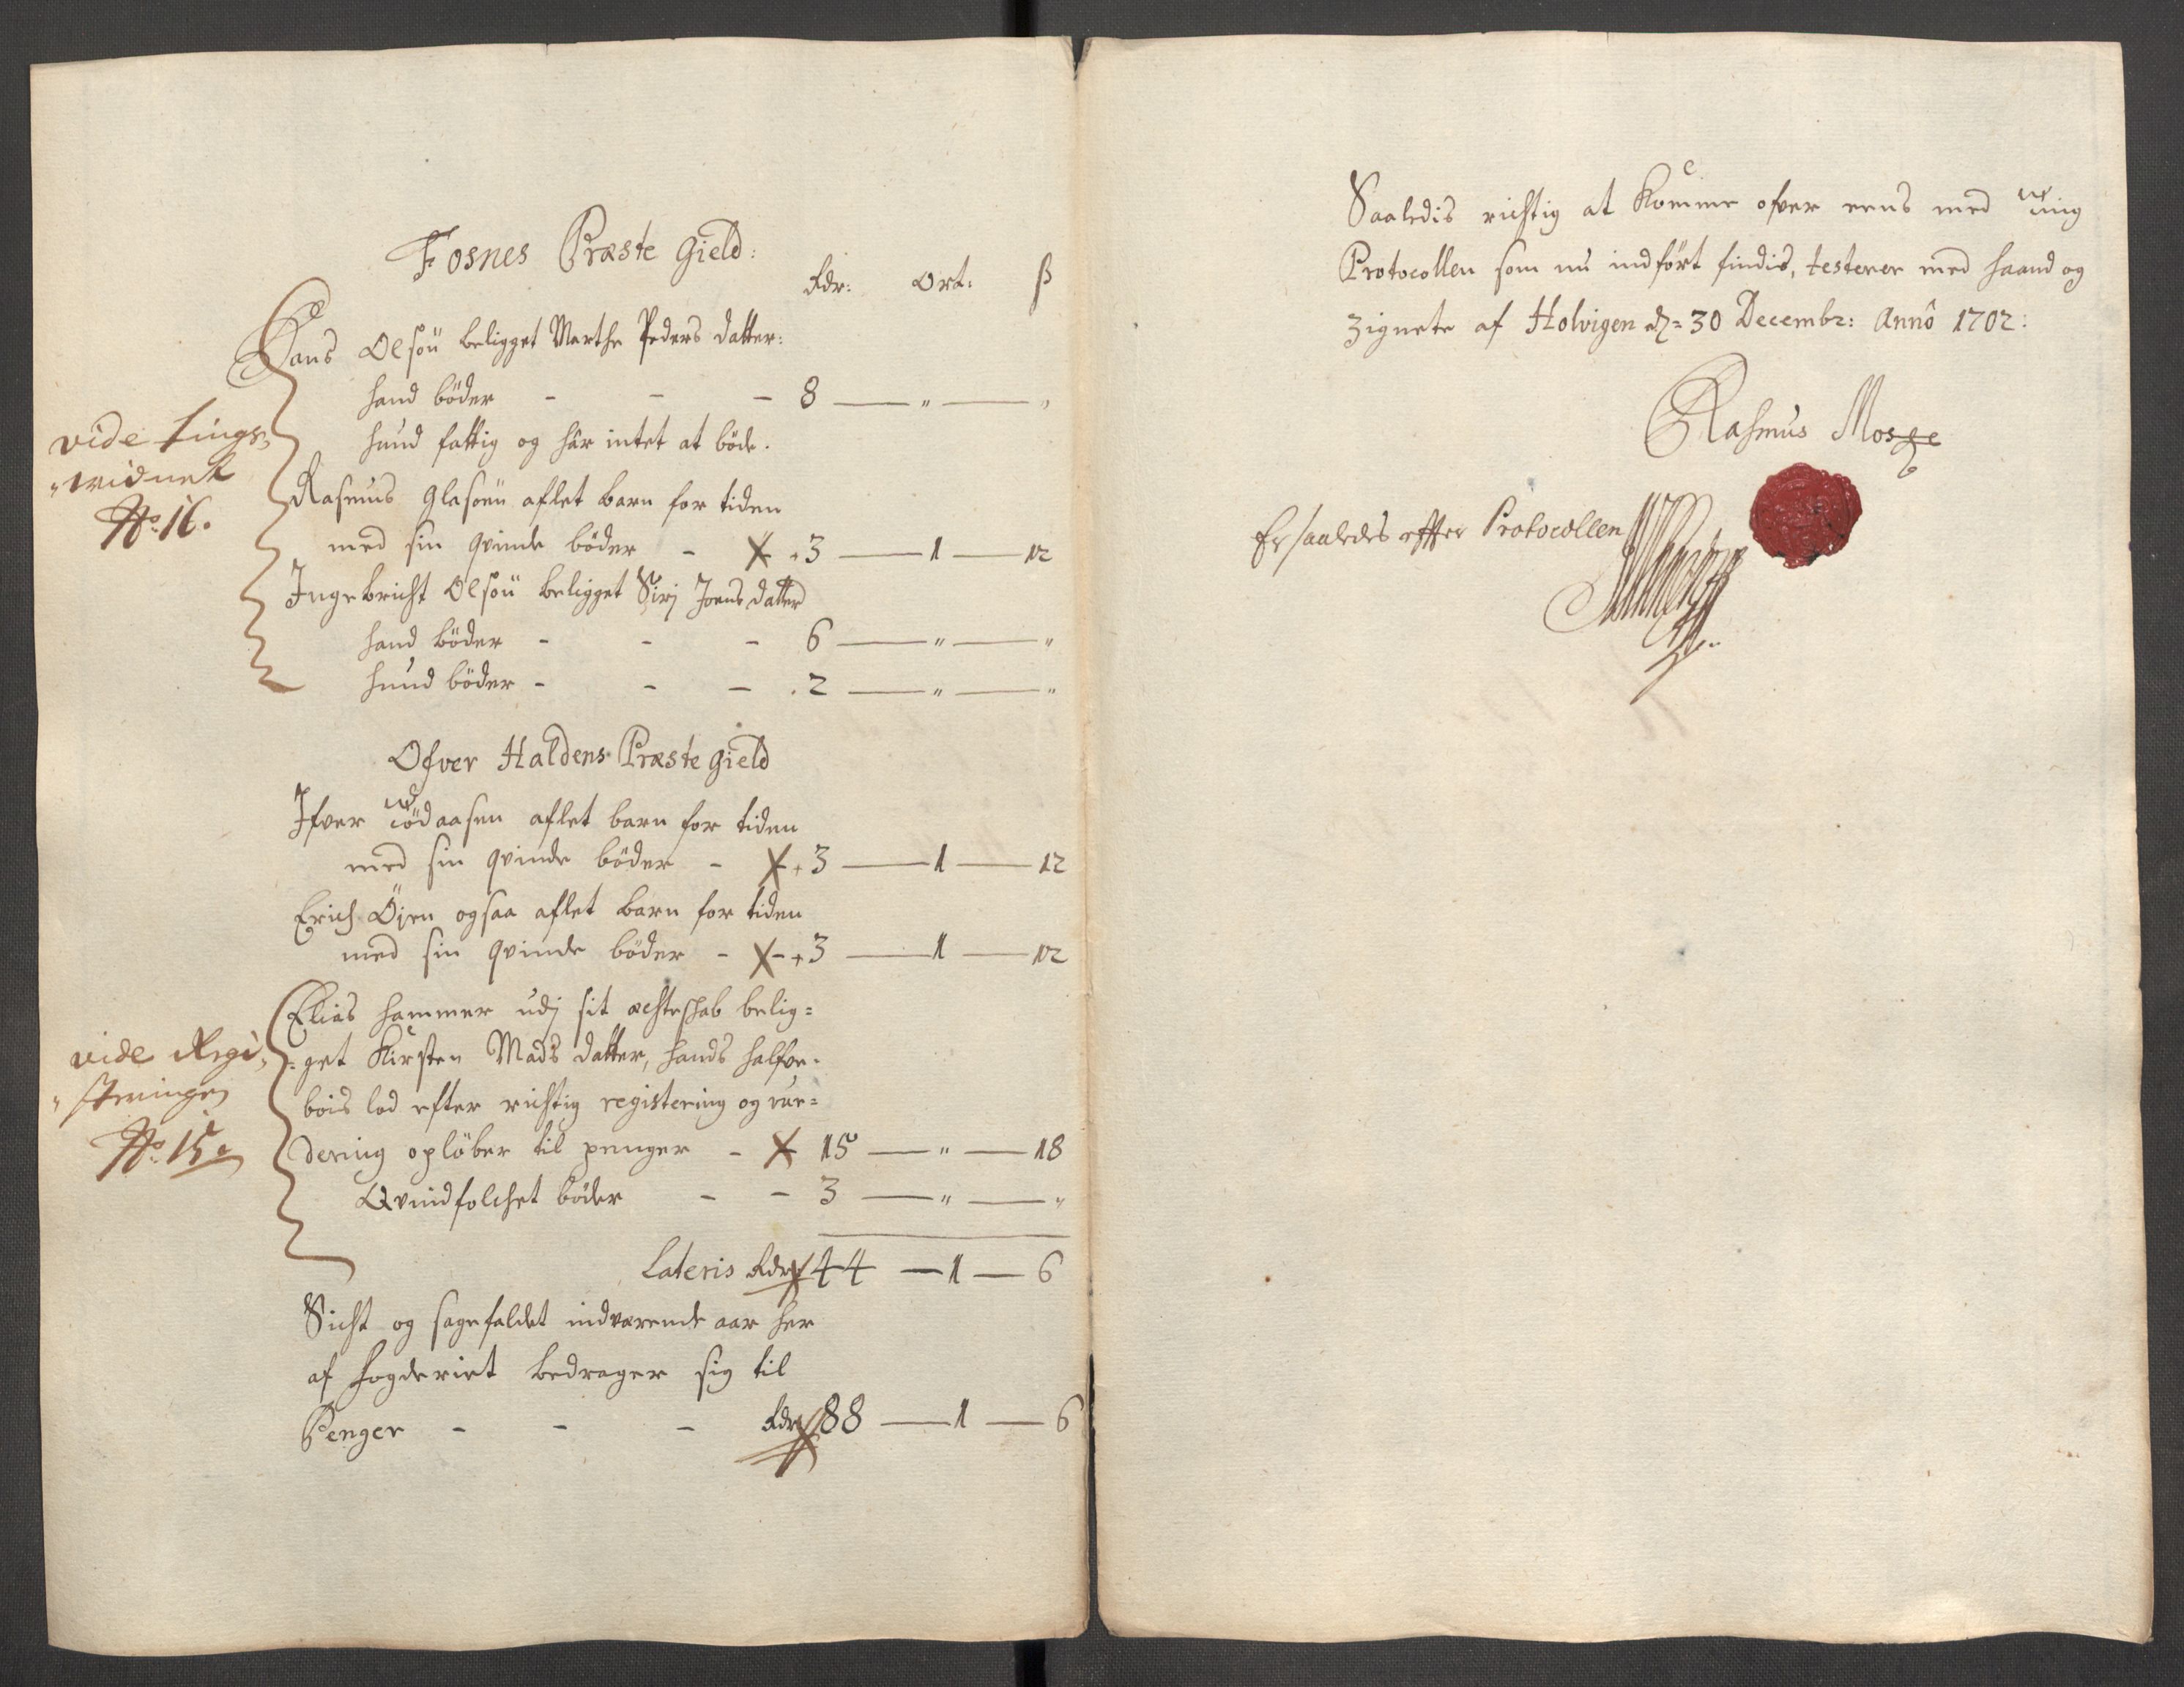 Fosnes Præste gield:
Rdr: Ort: ß
Hans Olsøn beligget Marthe Peders datter:
hand böder - - - 8 — " — "
hund fattig og har intet at böde.
vide tings
widnet
No. 16.
Rasmus Olasøn aflet barn for tiden
med sin qvinde böder - X + 3 — 1 — 12
Ingebricht Olsøn beligget Sirj Joens datter
hand böder - - - 6 — " — "
hund böder - - - 2 — " — "
Ofver Haldens Præste gield
Ifver Ködaasen aflet barn for tiden
med sin qvinde böder - X + 3 — 1 — 12
Erich Öjen ogsaa aflet barn for tiden
med sin qvinde böder - X + 3 — 1 — 12
Elias hammer udj sit echteschab belig=
=get Kirsten Mads datter, hands halfve
vide Regi
stringen
No. 15
bois lod efter richtig registering og vur=
dering opløber til penger - X 15 — " — 18
Qvindfolchet böder - - 3 — " — "
Lateris Rdr 44 — 1 — 6
Sicht og sagefaldet indværende aar her
af fogderiet bedrager sig til
Penger - - - Rdr 88 — 1 — 6
Saaledis richtig at komme ofver eens med ting
Protocollen som nu indfört findis, testerer med haand og
Zignete af Holvigen d: 30 Decembr: Annô 1702:
Rasmus Mosge
Er saaledes effter Protocollen